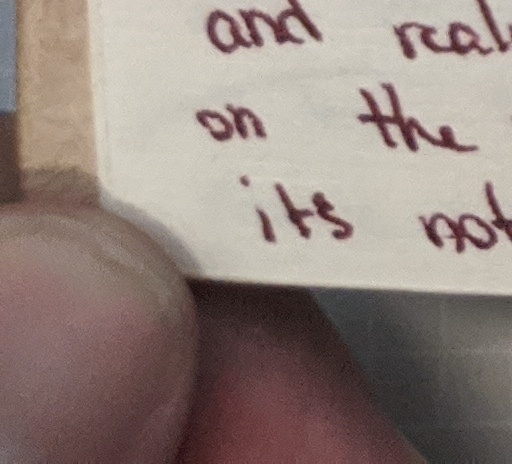 and real
on the
its not